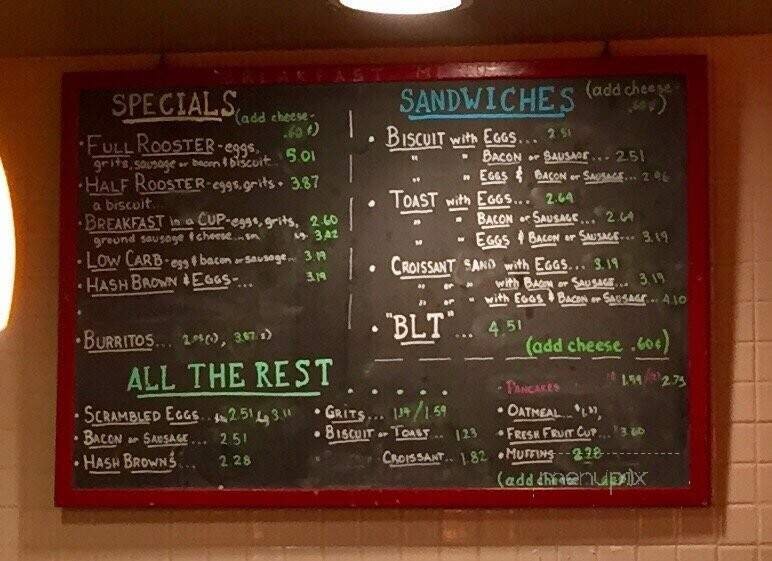 BREAKFAST MENU
SPECIALS (add cheese-
.60¢)
• FULL ROOSTER - eggs,
grits, sausage or bacon & biscuit... 5.01
• HALF ROOSTER - eggs, grits & 3.87
a biscuit...
• BREAKFAST in a CUP - eggs, grits, 2.60
ground sausage & cheese... sm lg. 3.42
• LOW CARB - egg & bacon or sausage... 3.19
• HASH BROWN & EGGS-... 3.19
• BURRITOS... 3.87
SANDWICHES (add cheese-
.60¢)
• BISCUIT with EGGS... 2.51
" " BACON or SAUSAGE... 2.51
" " EGGS & BACON or SAUSAGE...
• TOAST with EGGS... 2.64
" " BACON or SAUSAGE... 2.64
" " EGGS & BACON or SAUSAGE... 3.19
• CROISSANT SAND with EGGS... 3.19
" or " with BACON or SAUSAGE... 3.19
" or " with EGGS & BACON or SAUSAGE... 4.10
• "BLT"... 4.51
(add cheese .60¢)
ALL THE REST . . . . .
• SCRAMBLED EGGS... sm 2.51, lg 3.11
• BACON or SAUSAGE... 2.51
• HASH BROWNS... 2.28
• GRITS... 1.19/1.59
• BISCUIT or TOAST... 1.23
CROISSANT... 1.82
• PANCAKES (1) 1.59/(2) 2.73
• OATMEAL...
• FRESH FRUIT CUP... 3.60
• MUFFINS 2.28
(add cheese
menupix